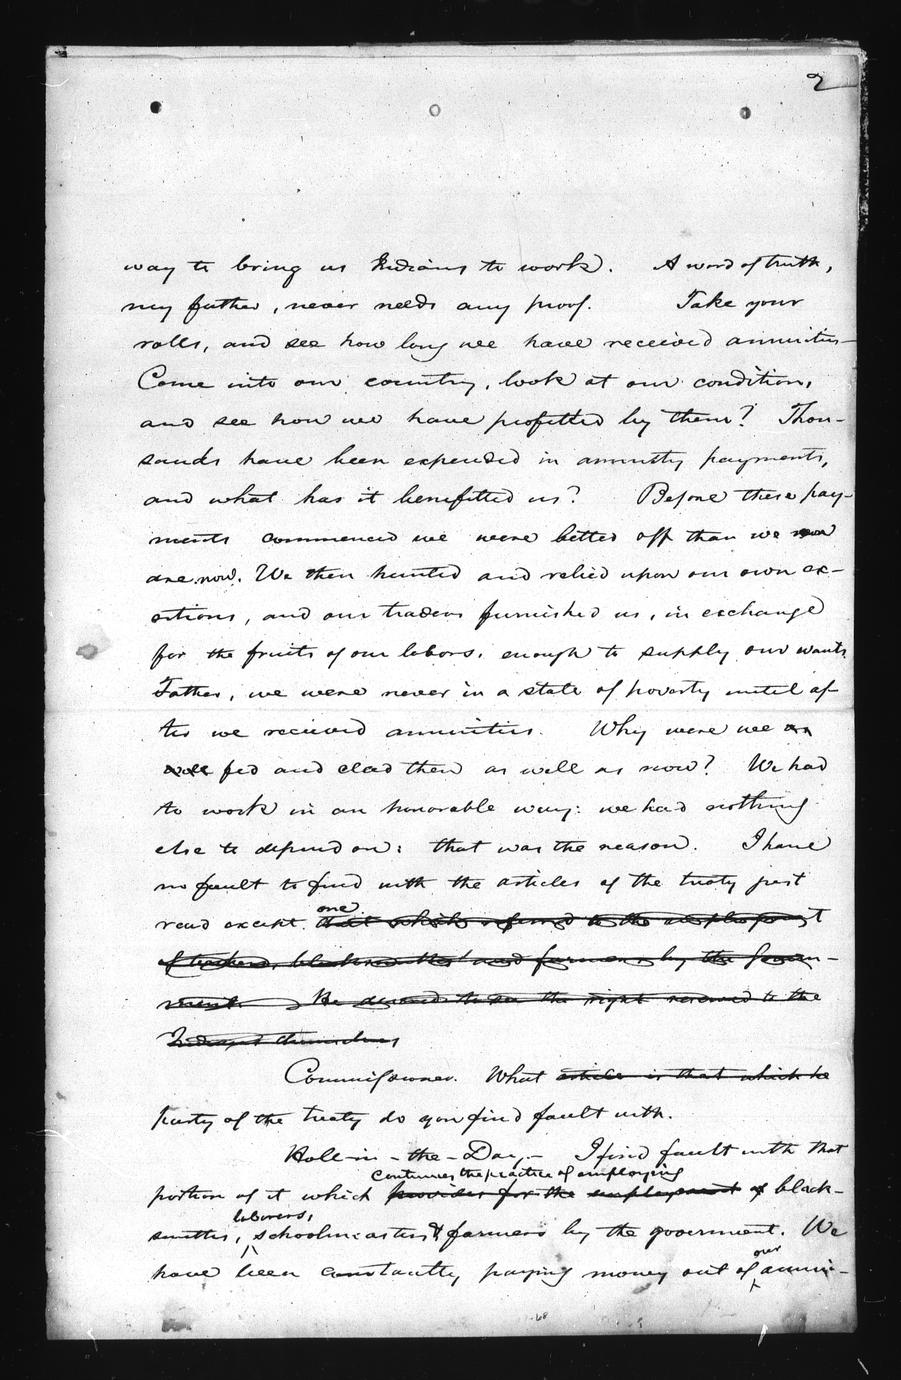 2
way to bring us Indians to work. A word of truth,
my father, never needs any proof. Take your
rolls, and see how long we have received annuities—
Come into our country, look at our condition,
and see how we have profitted by them? Thou-
sands have been expended in annuity payments,
and what has it benefitted us? Before these pay-
ments commenced we were better off than we now
are now. We then hunted and relied upon our own ex-
ertions, and our traders furnished us, in exchange
for the fruits of our labors, enough to supply our wants.
Father, we were never in a state of poverty until af-
ter we received annuities. Why were we as
well fed and clad then as well as now? We had
to work in an honorable way: we had nothing
else to depend on: that was the reason. I have
no fault to find with the articles of the treaty just
read except one that which referred to the employment
of teachers, blacksmiths and farmers by the Govern-
ment. He desired to see the right reserved to the
Indians themselves
Commissioner. What article is that which he
party of the treaty do you find fault with.
Hole-in-the-Day,- I find fault with that
continues the practice of employing
portion of it which provides for the employment of black-
laborers,
smiths, schoolmasters & farmers by the goverment. We
our
have been constantly paying money out of annui-